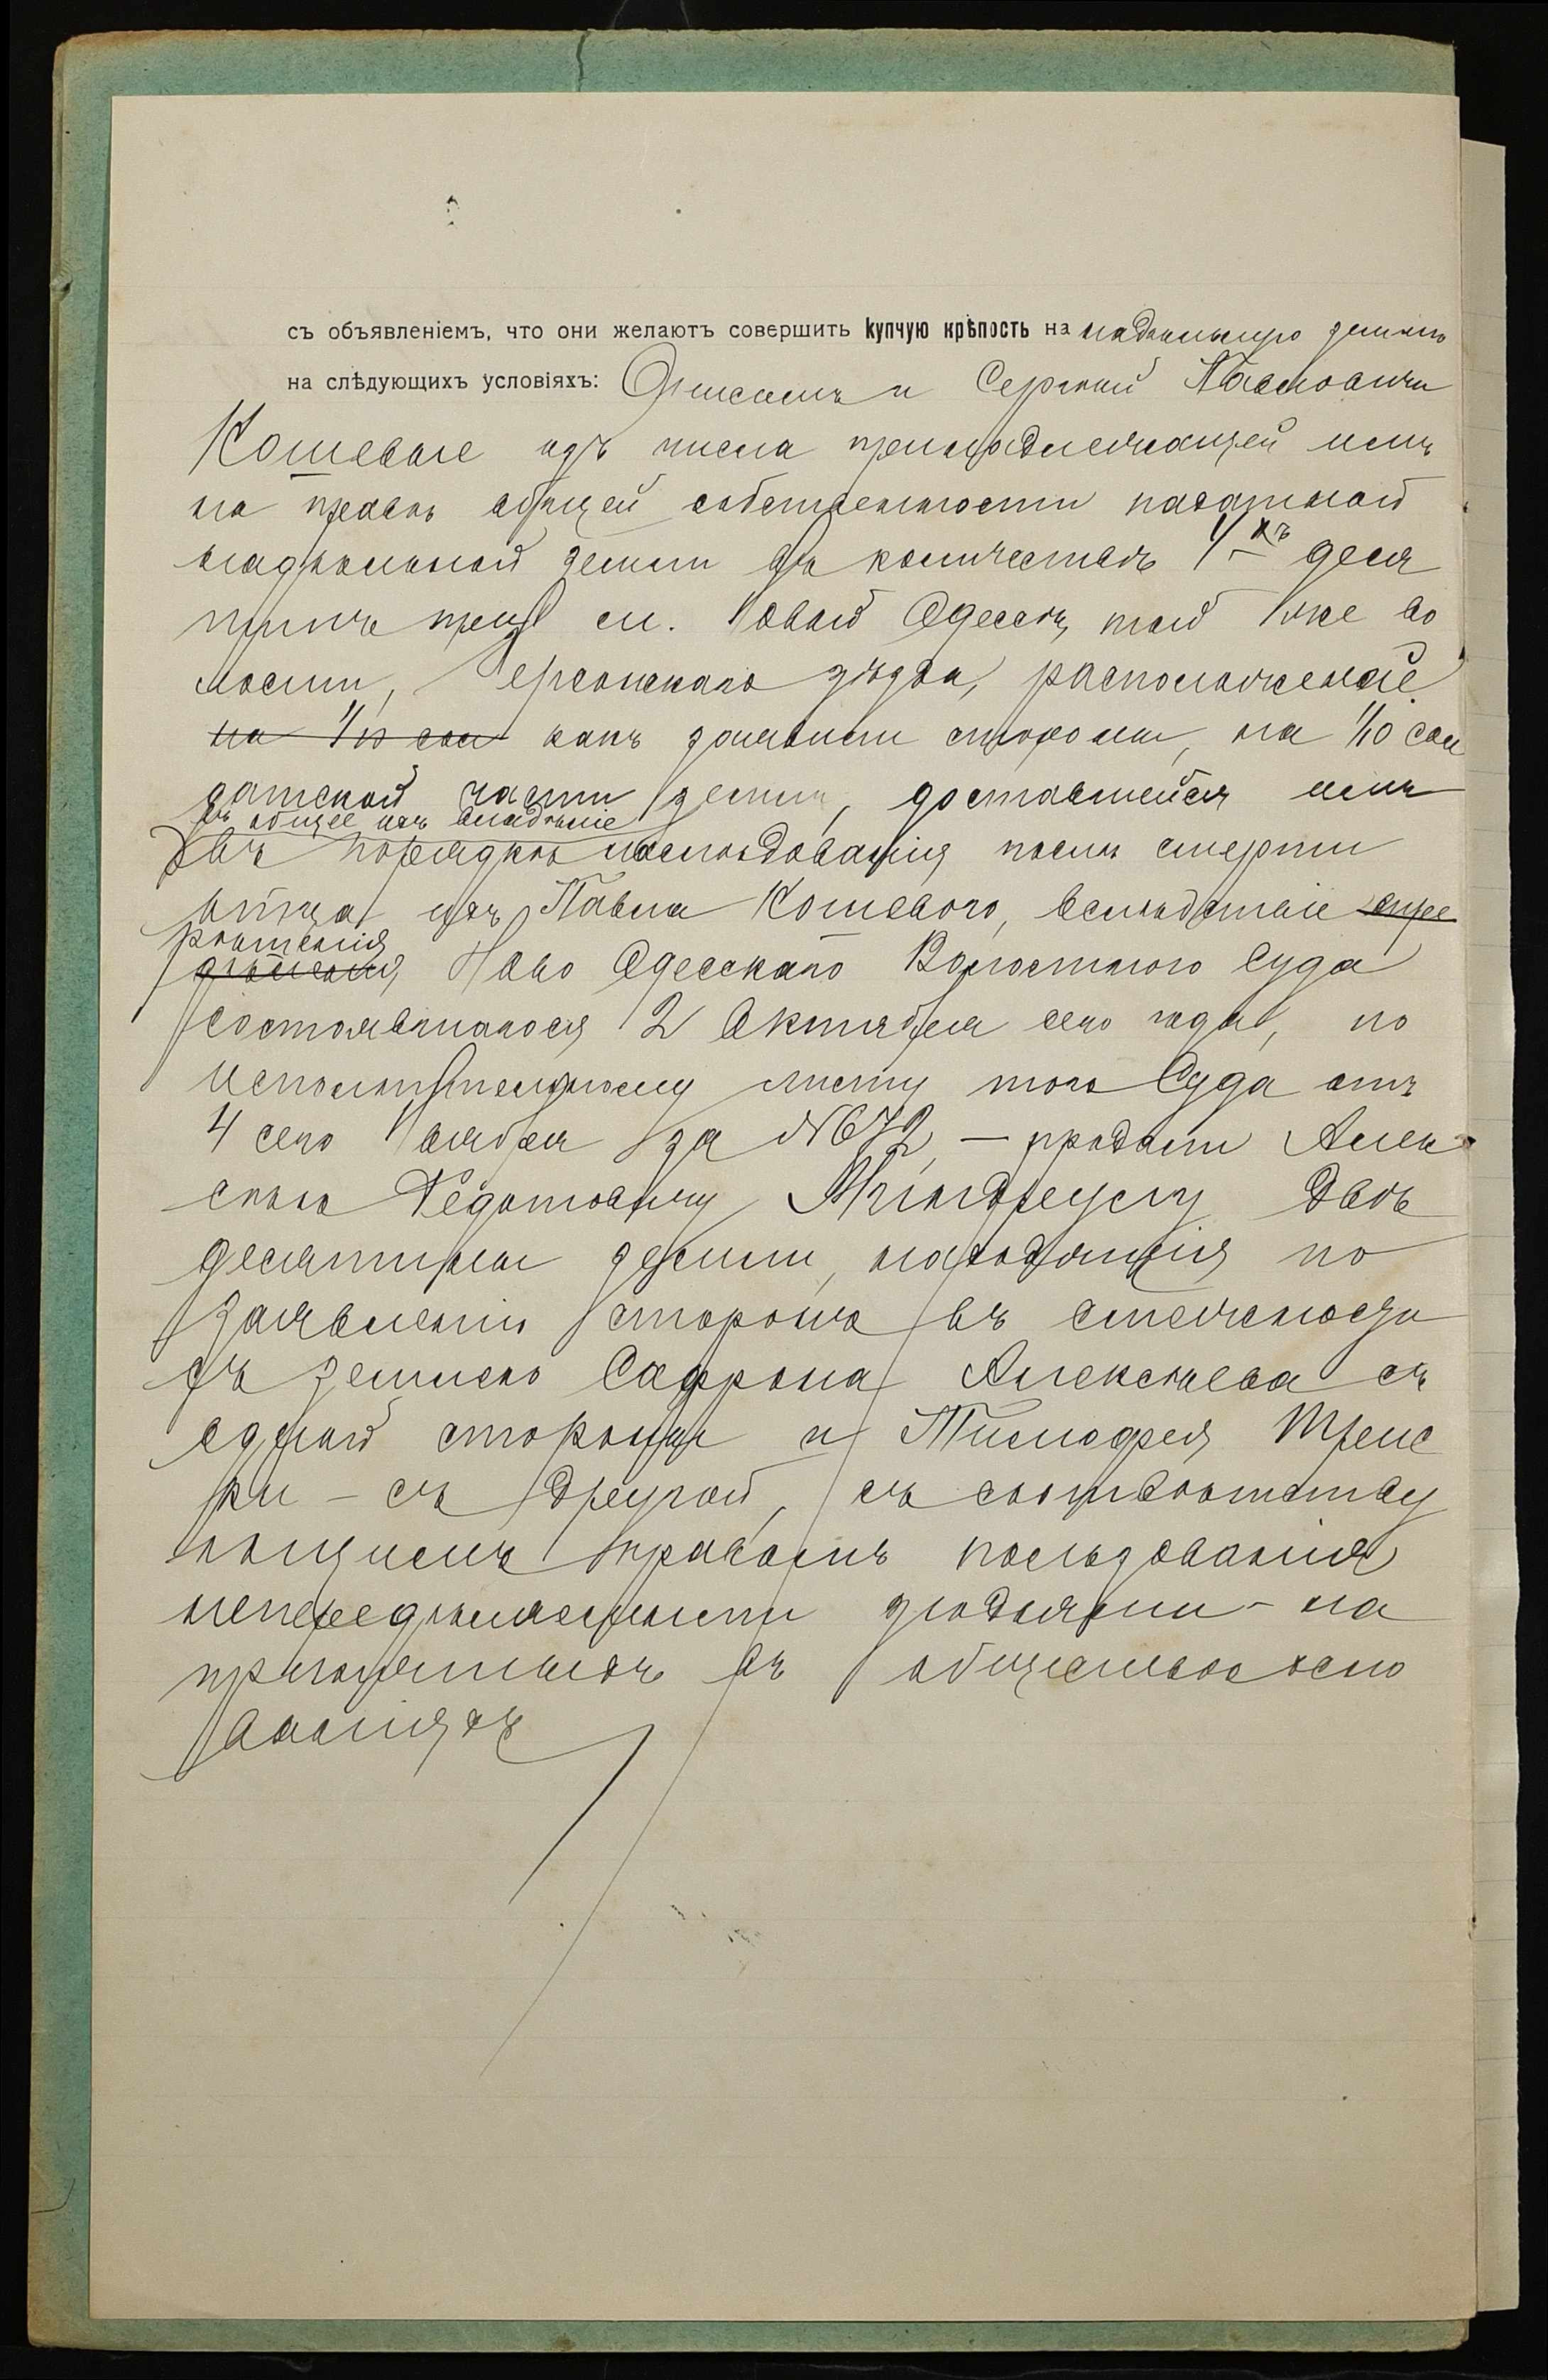 съ объявленіемъ, что они желаютъ совершить купчую крѣпость на надѣльную землю
на слѣдующихъ условіяхъ: и Сергѣй Павловичи
Кошевые изъ числа принадлежащей имъ
на правѣ общей собственности пахатной
надѣльной земли въ количествѣ 4хъ деся
тинъ при м. Новой Одессѣ, той же во
лости, Херсонскаго уѣзда, расположенной
на 1/10 сол какъ заявили стороны, на 1/10 сол
датской части земли, доставшейся имъ
въ общее ихъ владѣніе
въ порядкѣ наслѣдованія послѣ смерти
отца ихъ Павла Кошевого, вслѣдствіе опре
рѣшенія
дѣленія Ново Одесскаго Волостного Суда
состоявшагося 2 Октября сего года, по
исполнительному листу того Суда отъ
4 сего Ноября за №672, – продали Алек
сѣю Федотовичу Мындреску двѣ
десятины земли, находящіяся по
заявленію сторонъ въ смежности
съ землею Сафрона Алексѣева съ
одной стороны и Тимофея
– съ другой, съ соотвѣтству
ющимъ правомъ пользованія
непередѣляемыми угодьями – на
принятыхъ въ обществѣ осно
ваніяхъ